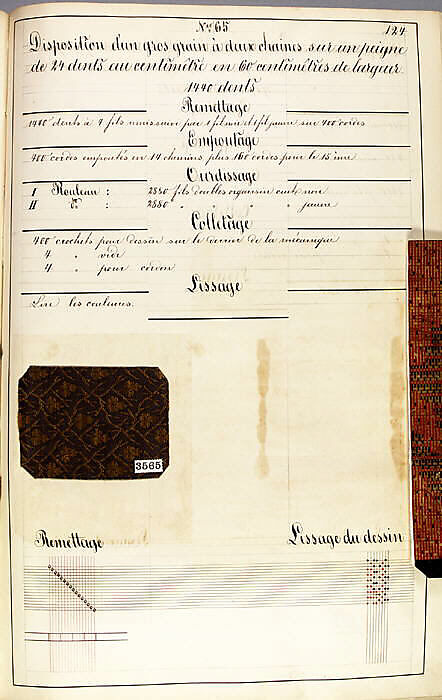 No. 65
124
Disposition d'un gros grain à deux chaines sur un peigne
de 24 dents au centimètre en 60 centimètres de largeur
1440 dents
Remettage
1440 dents à 4 fils par 1 fil noir et 1 fil jaune sur 400 cordes
Empoutage
400 cordes empoutés en 14 chemins plus 160 cordes pour le 15 ime
Ourdissage
I Rouleau : 2880 fils doubles organsin cuite noir
II do : 2880 " " " " jaune
Colletage
400 crochets pour dessin sur le dernier de la mécanique
4 " vide
4 " pour cordon
Lissage
Lire les couleurs.
3565
Remettage
Lissage du dessin